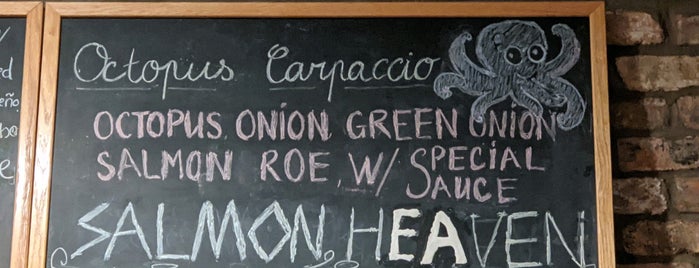 Octopus Carpaccio
OCTOPUS ONION GREEN ONION
SALMON ROE W/ SPECIAL
SAUCE
SALMON HEAVEN